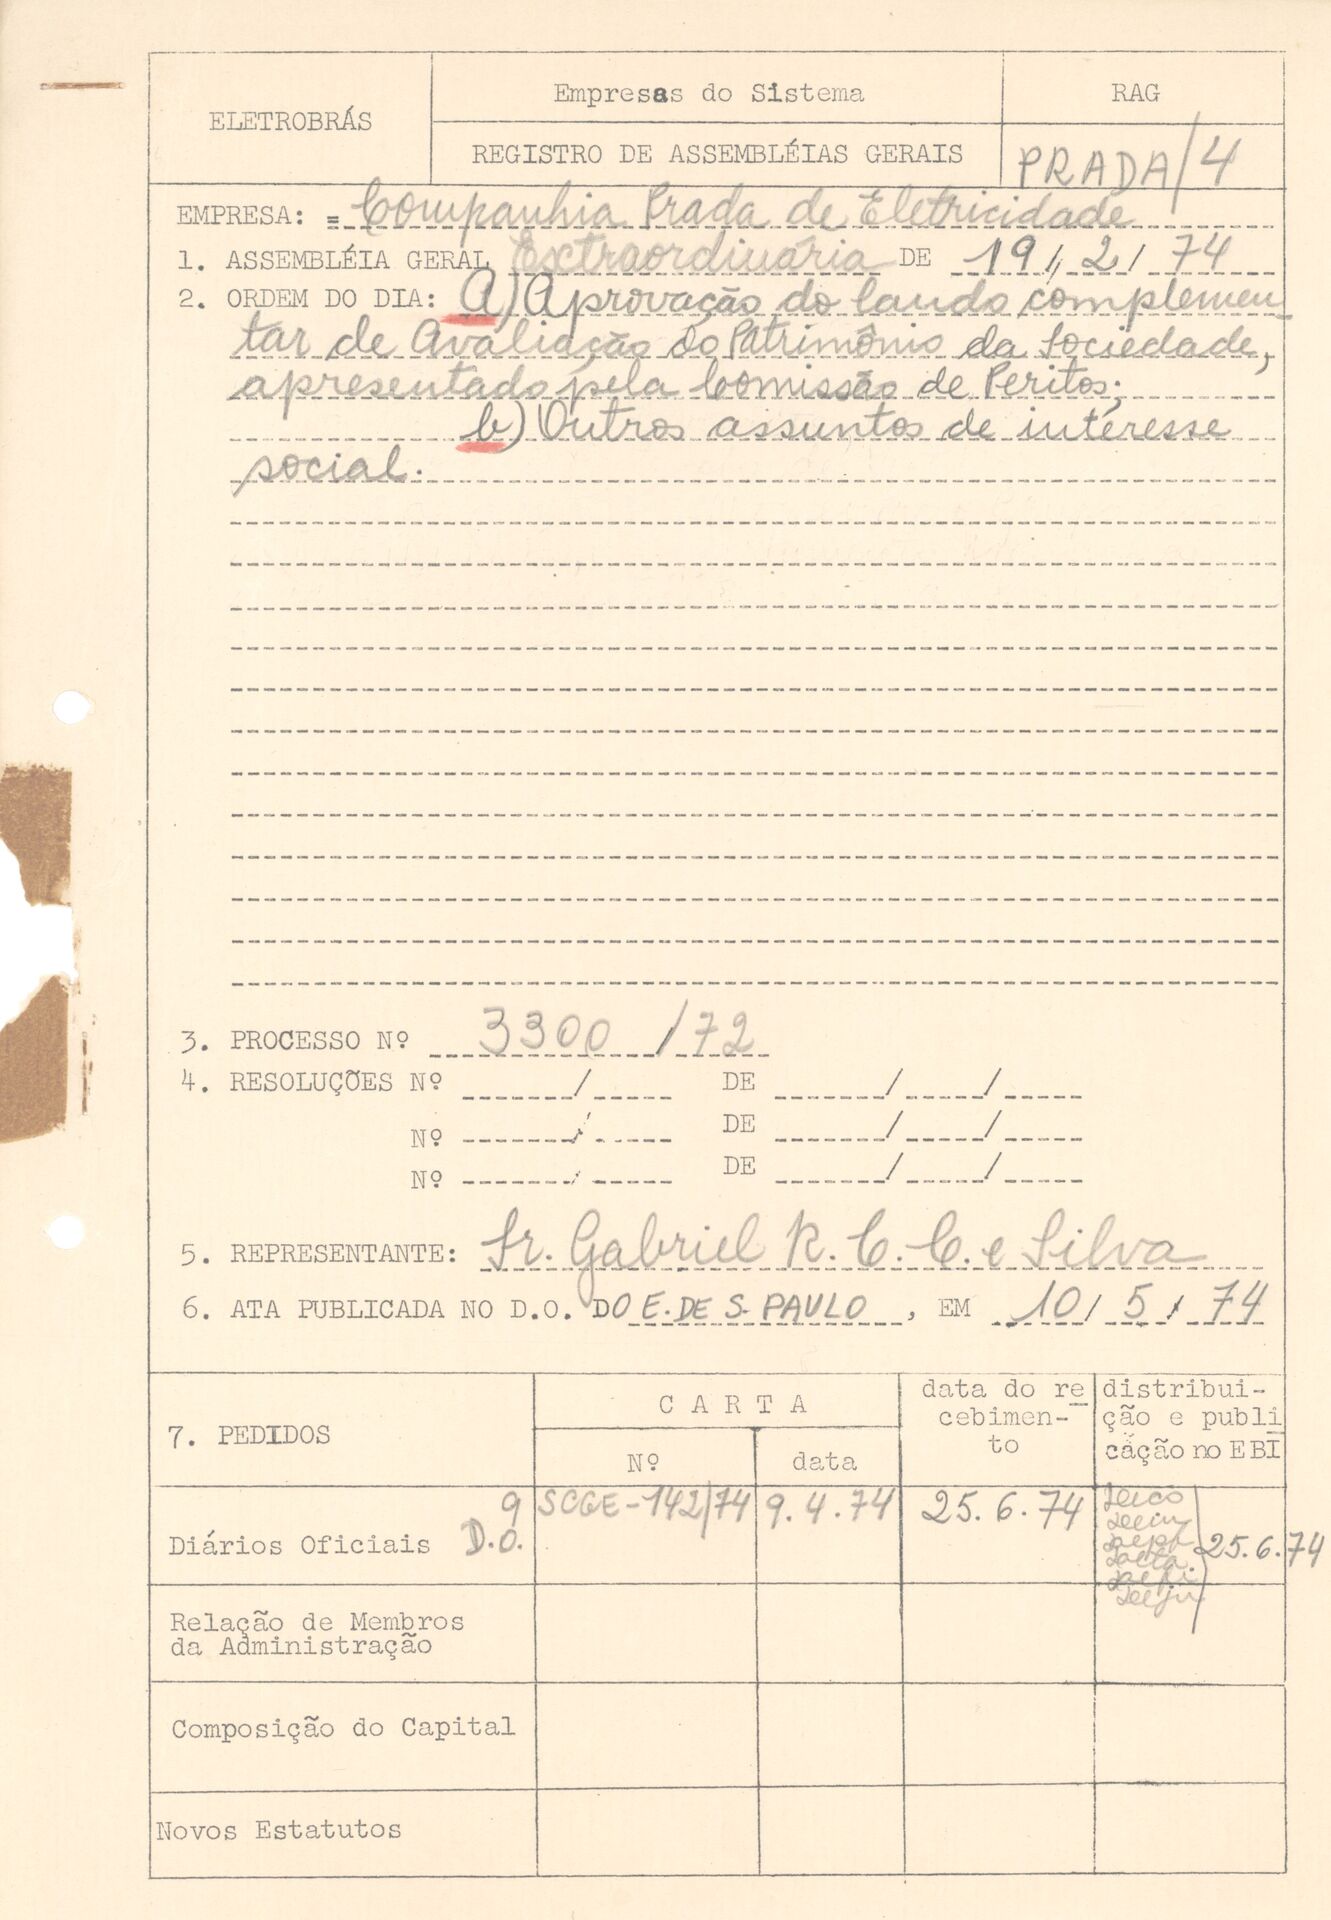 ELETROBRÁS
Empresas do Sistema
RAG
REGISTRO DE ASSEMBLÉIAS GERAIS
PRADA/4
EMPRESA: = Companhia Prada de Eletricidade
1. ASSEMBLÉIA GERAL Extraordinária DE 19/2/74
2. ORDEM DO DIA: A) Aprovação do laudo complemen-
tar de Avaliação do Patrimônio da Sociedade,
apresentado pela Comissão de Peritos;
b) Outros assuntos de interesse
social.
3. PROCESSO Nº 3300/72
4. RESOLUÇÕES Nº / DE / /
Nº / DE / /
Nº / DE / /
5. REPRESENTANTE: Sr. Gabriel R. C. C. e Silva
6. ATA PUBLICADA NO D.O. DO E. DE S. PAULO, EM 10/5/74
7. PEDIDOS
C A R T A
Nº
data
data do re
cebimen-
to
distribui-
ção e publi
cáção no EBI
Diários Oficiais 9 D.O.
SCGE-142/74
9.4.74
25.6.74
25.6.74
Relação de Membros
da Administração
Composição do Capital
Novos Estatutos